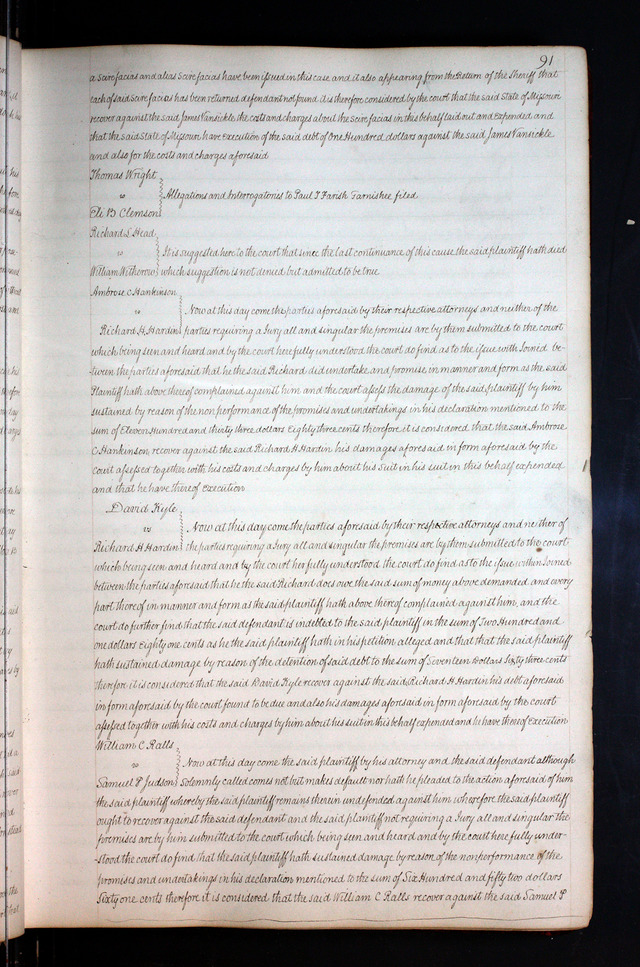 91
a scire facias and alias scire facias have been issued in this case and it also appearing from the Return of the Sheriff that
each of said scire facias has been returned defendant not found it is therefore considered by the court that the said State of Missouri
recover against the said James Vansickle the costs and charges about the scire facias in this behalf laid out and Expended and
that the said State of Missouri have Execution of the said debt of One Hundred dollars against the said James Vansickle
and also for the costs and charges aforesaid
Thomas Wright
vs
Allegations and Interrogatories to Paul T Farish Garnishee filed
Eli B Clemson
Richard L Head
vs
It is suggested here to the court that since the last continuance of this cause the said plaintiff hath died
William Withorow which suggestion is not denied but admitted to be true
Ambrose C Hankinson
vs
Now at this day come the parties aforesaid by their respective attorneys and neither of the
Richard H Hardin parties requiring a Jury all and singular the premises are by them submitted to the court
which being seen and heard and by the court here fully understood the court do find as to the issue with Joined be-
tween the parties aforesaid that he the said Richard did undertake and promise in manner and form as the said
Plaintiff hath above thereof complained against him and the court assess the damage of the said plaintiff by him
sustained by reason of the non performance of the promises and undertakings in his declaration mentioned to the
sum of Eleven Hundred and thirty three dollars Eighty three cents therefore it is considered that the said Ambrose
C Hankinson recover against the said Richard H Hardin his damages aforesaid in form aforesaid by the
court assessed together with his costs and charges by him about his Suit in his suit in this behalf expended
and that he have thereof Execution
David Kyle
vs
Now at this day come the parties aforesaid by their respective attorneys and neither of
Richard H Hardin the parties requiring a Jury all and singular the premises are by them submitted to the court
which being seen and heard and by the court her fully understood the court do find as to the issue within Joined
between the parties aforesaid that he the said Richard does owe the said sum of money above demanded and every
part thereof in manner and form as the said plaintiff hath above thereof complained against him, and the
court do further find that the said defendant is indebted to the said plaintiff in the sum of Two Hundred and
one dollars Eighty one cents as he the said plaintiff hath in his petition alleged and that that the said plaintiff
hath sustained damage by reason of the detention of said debt to the sum of Seventeen Dollars Sixty three cents
therefore it is considered that the said David Kyle recover against the said Richard H Hardin his debt aforesaid
in form aforesaid by the court found to be due and also his damages aforesaid in form aforesaid by the court
assessed together with his costs and charges by him about his suit in this behalf expended and he have thereof Execution
William C Ralls
vs
Now at this day come the said plaintiff by his attorney and the said defendant although
Samuel P Judson Solemnly called comes not but makes default nor hath he pleaded to the action aforesaid of him
the said plaintiff whereby the said plaintiff remains therein undefended against him wherefore the said plaintiff
ought to recover against the said defendant and the said plaintiff not requiring a Jury all and singular the
premises are by him submitted to the court which being seen and heard and by the court here fully under-
-stood the court do find that the said plaintiff hath sustained damage by reason of the nonperformance of the
promises and undertakings in his declaration mentioned to the sum of Six Hundred and fifty two dollars
Sixty one cents therefore it is considered that the said William C Ralls recover against the said Samuel P